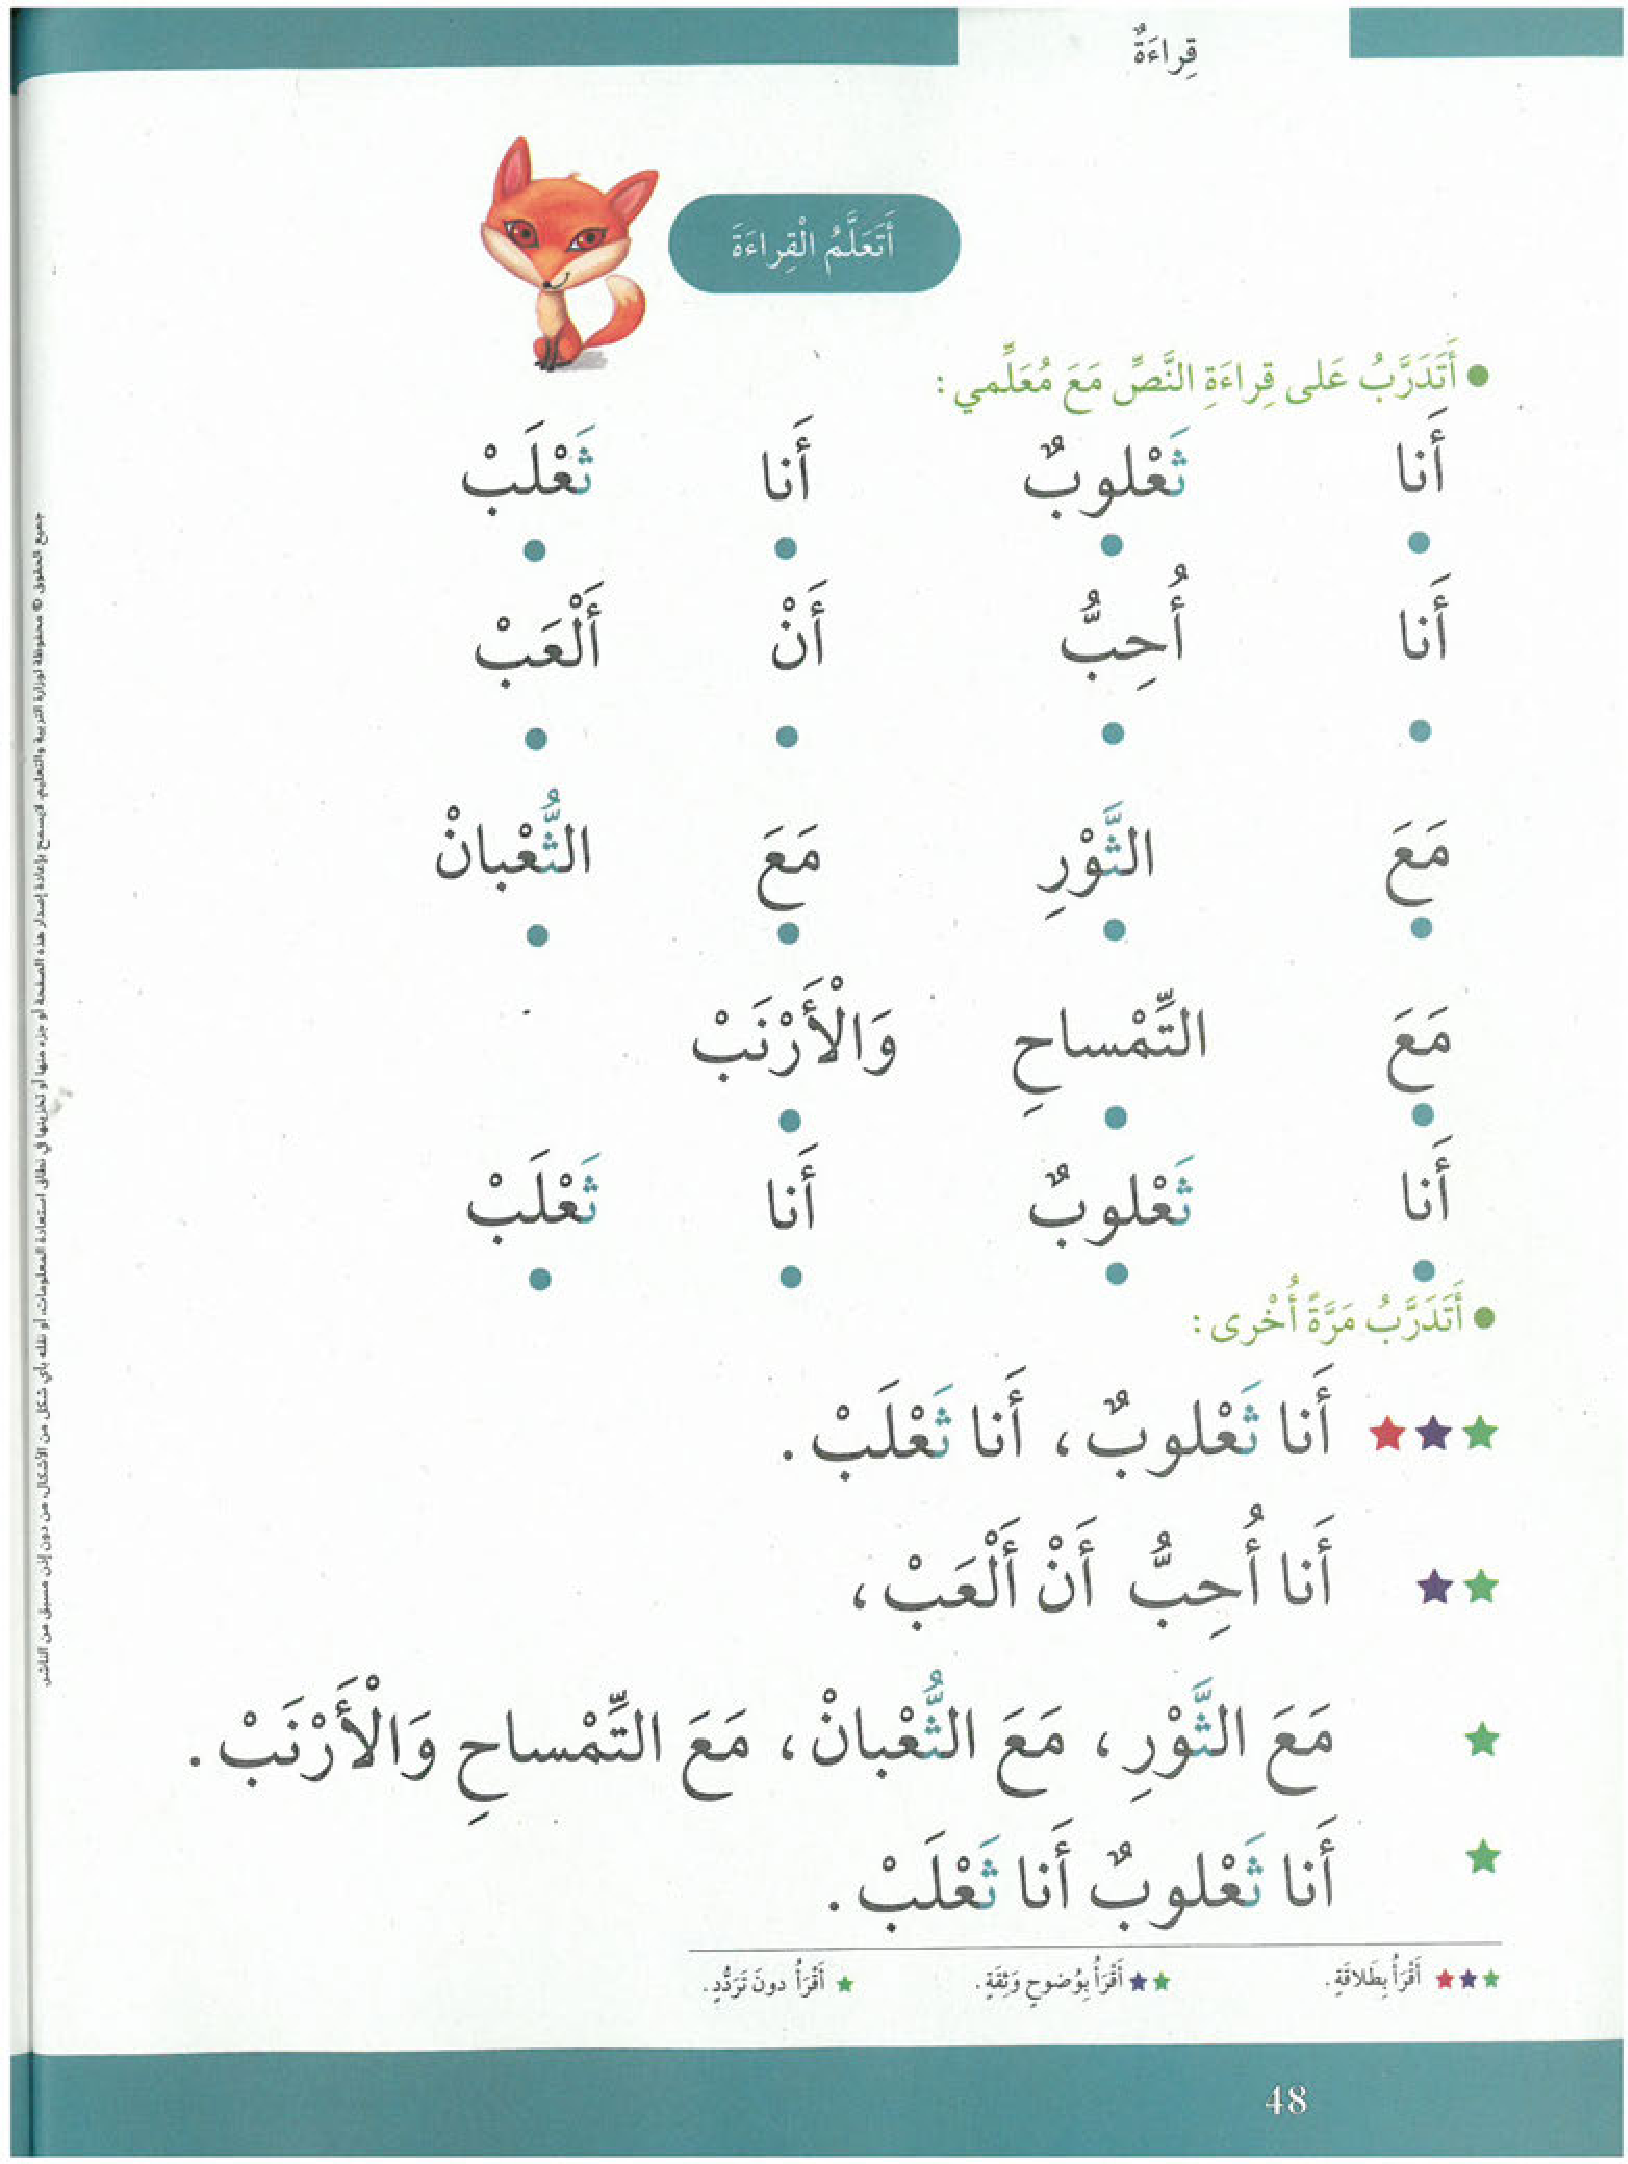 قِراءَةٌ
أَتَعَلَّمُ الْقِراءَةَ
● أَتَدَرَّبُ عَلى قِراءَةِ النَّصِّ مَعَ مُعَلِّمي :
أَنا ثَعْلوبٌ أَنا ثَعْلَبْ
أَنا أُحِبُّ أَنْ أَلْعَبْ
مَعَ الثَّوْرِ مَعَ الثُّعْبانْ
مَعَ التِّمْساحِ وَالْأَرْنَبْ
أَنا ثَعْلوبٌ أَنا ثَعْلَبْ
● أَتَدَرَّبُ مَرَّةً أُخْرى :
★★★ أَنا ثَعْلوبٌ، أَنا ثَعْلَبْ.
★★ أَنا أُحِبُّ أَنْ أَلْعَبْ،
★ مَعَ الثَّوْرِ، مَعَ الثُّعْبانْ، مَعَ التِّمْساحِ وَالْأَرْنَبْ.
★ أَنا ثَعْلوبٌ أَنا ثَعْلَبْ.
★★★ أَقْرَأُ بِطَلاقَةٍ. ★★ أَقْرَأُ بِوُضوحٍ وَثِقَةٍ. ★ أَقْرَأُ دونَ تَرَدُّدٍ.
48
جميع الحقوق © محفوظة لوزارة التربية والتعليم. لايسمح بإعادة إصدار هذه الصفحة أو جزء منها أو تخزينها في نطاق استعادة المعلومات، أو نقله بأي شكل من الأشكال، من دون إذن مسبق من الناشر.